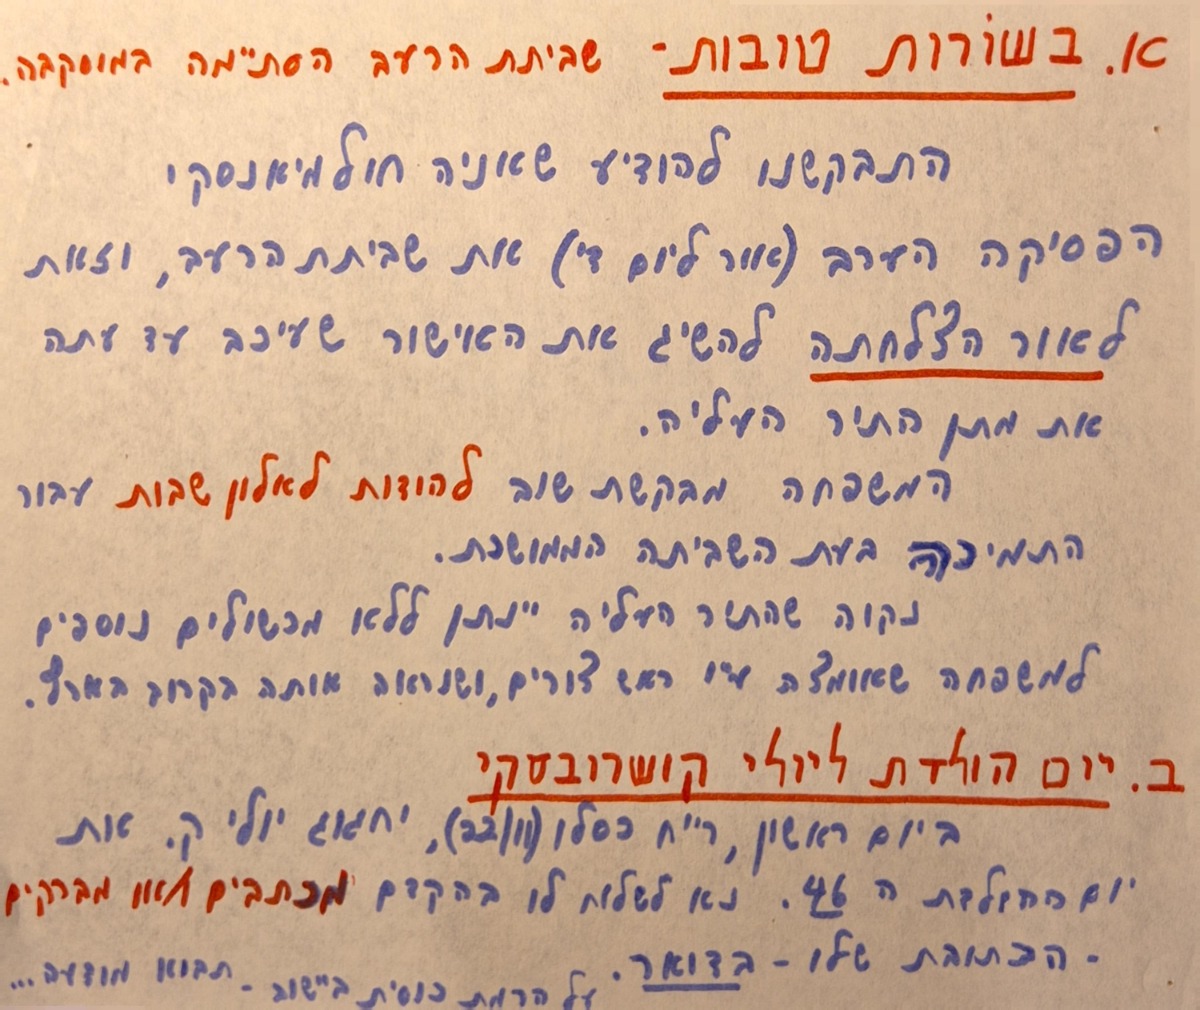 א. בשורות טובות- שביתת הרעב הסתיימה במוסקבה.
התבקשנו להודיע שאניה חולמיאנסקי
הפסיקה הערב (אור ליום ד') את שביתת הרעב, וזאת
לאור הצלחתה להשיג את האישור שעיכב עד עתה
את מתן התיר העליה.
המשפחה מבקשת שוב להודות לאלון שבות עבור
התמיכה בעת השביתה הממושכת.
נקוה שהתיר העליה יינתן ללא מכשולים נוספים
למשפחה שאומצה ע"י ראש צורים, ושנראה אותה בקרוב בארץ.
ב. יום הולדת ליולי קושרובסקי
ביום ראשון, ר"ח כסלו, יחגוג יולי ק. את
יום ההולדת ה 46. נא לשלוח לו בהקדם מכתבים ו/או מברקים
- הכתובת שלו - בדואר.
על הרמת כוסית ביישוב - תבוא מודעה...